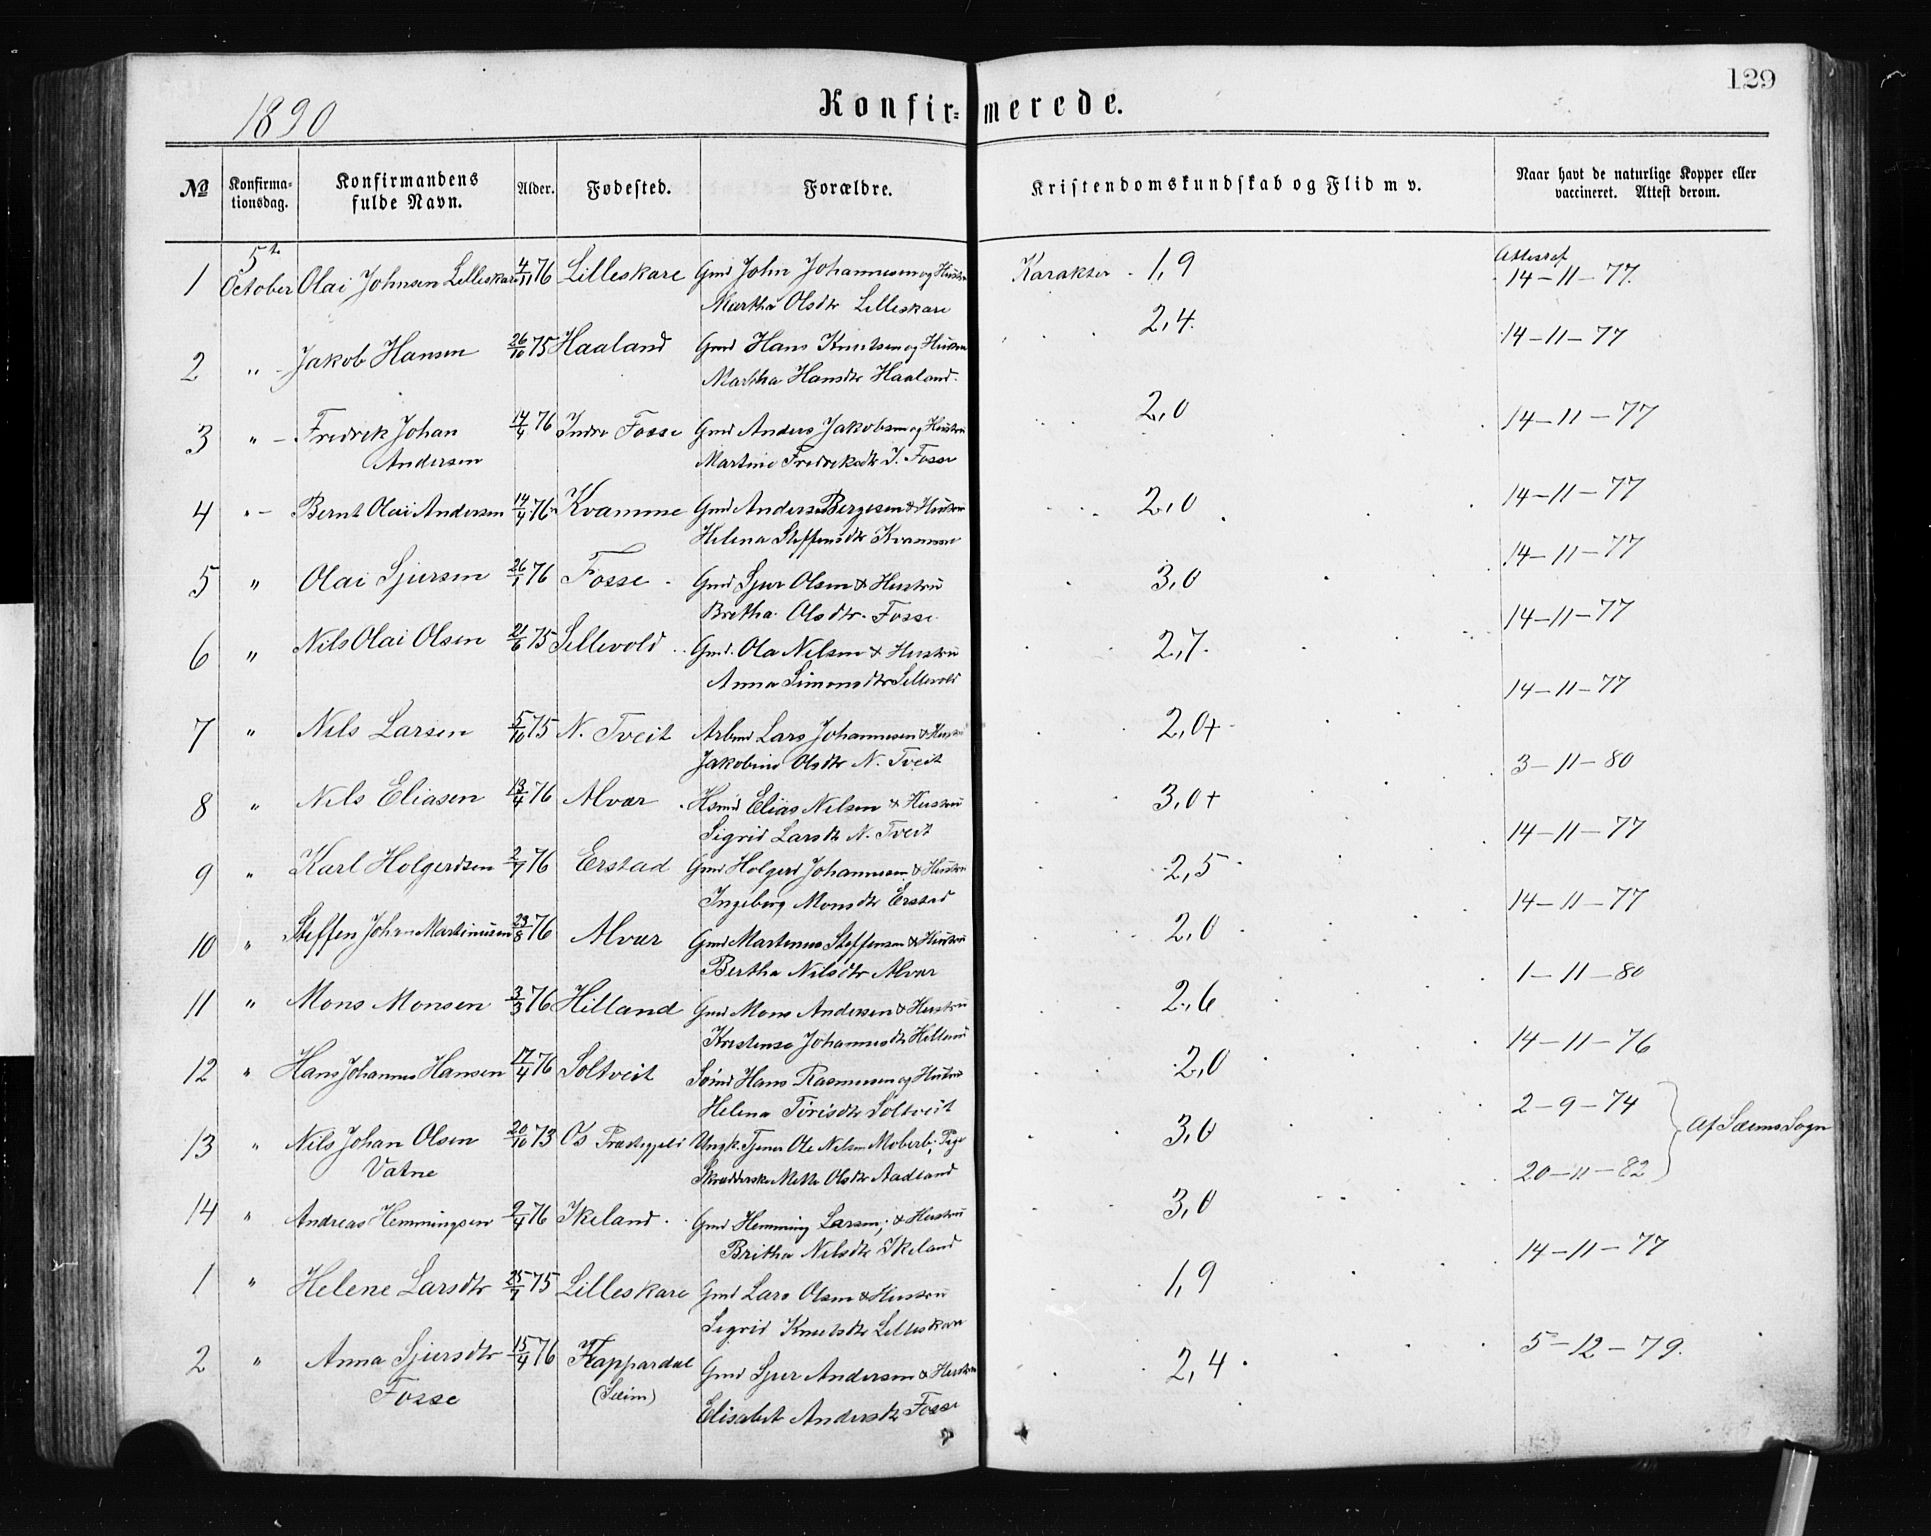 129
1890
Konfirmerede.
№ Konfirmationsdag. Konfirmandens fulde Navn. Alder. Fødested. Forældre. Kristendomskundskab og Flid m v. Naar havt de naturlige Kopper eller vaccineret. Attest derom.
1 5te October Olai Johnsen Lilleskare 4/11 76 Lilleskare Gmd John Johannesen og Hustru Karakter 1,9 Attest af 14-11-77.
Martha Olsdtr Lilleskare
2 " Jakob Hansen 26/10 75 Haaland Gmd Hans Knutsen og Hustru 2,4. 14-11-77
Martha Hansdtr Haaland.
3 " Fredrek Johan 17/4 76 Indre Fosse Gmd Anders Jakobsen og Hustru 2,0 14-11-77
Andersen Martine Fredreksdtr I. Fosse
4 " Bernt Olai Andersen 14/4 76 Kvamme Gmd Anders Bergesen & Hustru 2,0 14-11-77
Helena Steffensdtr Kvamme
5 " Olai Sjursen 26/1 76 Fosse Gmd Sjur Olsen & Hustru 3,0 14-11-77
Bretha Olsdtr. Fosse
6 " Nils Olai Olsen 21/6 75 Sellevold Gmd. Ola Nilsen & Hustru 2,7. 14-11-77
Anna Simonsdtr Sellevold
7 " Nils Larsen 5/10 75 N. Tveit Arbmd Lars Johannesen & Hustru 2,0+ 14-11-77
Jakobine Olsdtr N. Tveit
8 " Nils Eliasen 13/4 76 Alvær Hsmd Elias Nilsen & Hustru 3,0+ 3-11-80
Sigrid Larsdtr N. Tveit
9 " Karl Holgerdsen 2/7 76 Erstad Gmd Holgerd Johannesen & Hustru 2,5 14-11-77
Ingeborg Monsdtr Erstad
10 " Steffen Johan Martinusen 23/8 76 Alvær Gmd Martenus Steffensen & Hustru 2,0 14-11-77
Bertha Nilsdtr Alvær
11 " Mons Monsen 3/3 76 Hilland Gmd Mons Andersen & Hustru 2,6 1-11-80
Kristense Johannesdtr Hilland
12 " Hans Johannes Hansen 17/4 76 Soltveit Hans Rasmusen og Hustru 2,0 14-11-76
Helena Tørisdtr Soltveit
13 " Nils Johan Olsen 20/10 73 Os Præstegjeld Ungk. Tjener Ole Nilsen Moberb; Pige 3,0 2-9-74 Af Sæims Sogn
Vatne Skrædderske Mette Olsdtr Aadland 20-11-82
14 " Andreas Hemmingsen 9/4 76 Ikeland Gmd Hemming Larsen; & Hustru 3,0 14-11-77
Britha Nilsdtr Ikeland
1 " Helene Larsdtr 25/7 75 Lilleskare Gmd Lars Olsen & Hustru 1,9
Sigrid Knutsdtr Lilleskare
2 " Anna Sjursdtr 15/4 76 Kappardal Gmd Sjur Andersen & Hustru 2,4 5-12-79.
Fosse (Sæim) Elisabet Andersdtr Fosse